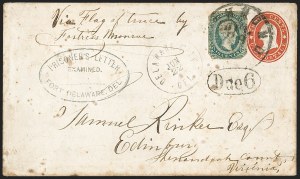 Via Flag of truce by
Fortress Monroe
PRISONER'S LETTER
EXAMINED.
FORT DELAWARE, DEL.
DELAWARE
DEL.
Due 6
Samuel Rinker Esq
Edinburg
Shenandoah County
Virginia